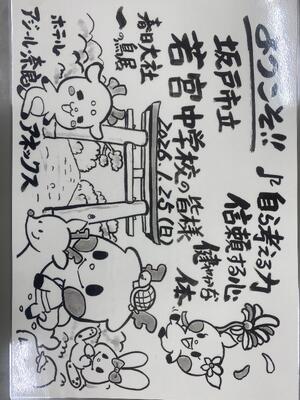 ようこそ!!
坂戸市立
若宮中学校の皆様
2026.1.25(日)
春日大社
の鳥居
ホテル
アジール・奈良
アネックス
♪自ら考える力
信頼する心
健やかな
体